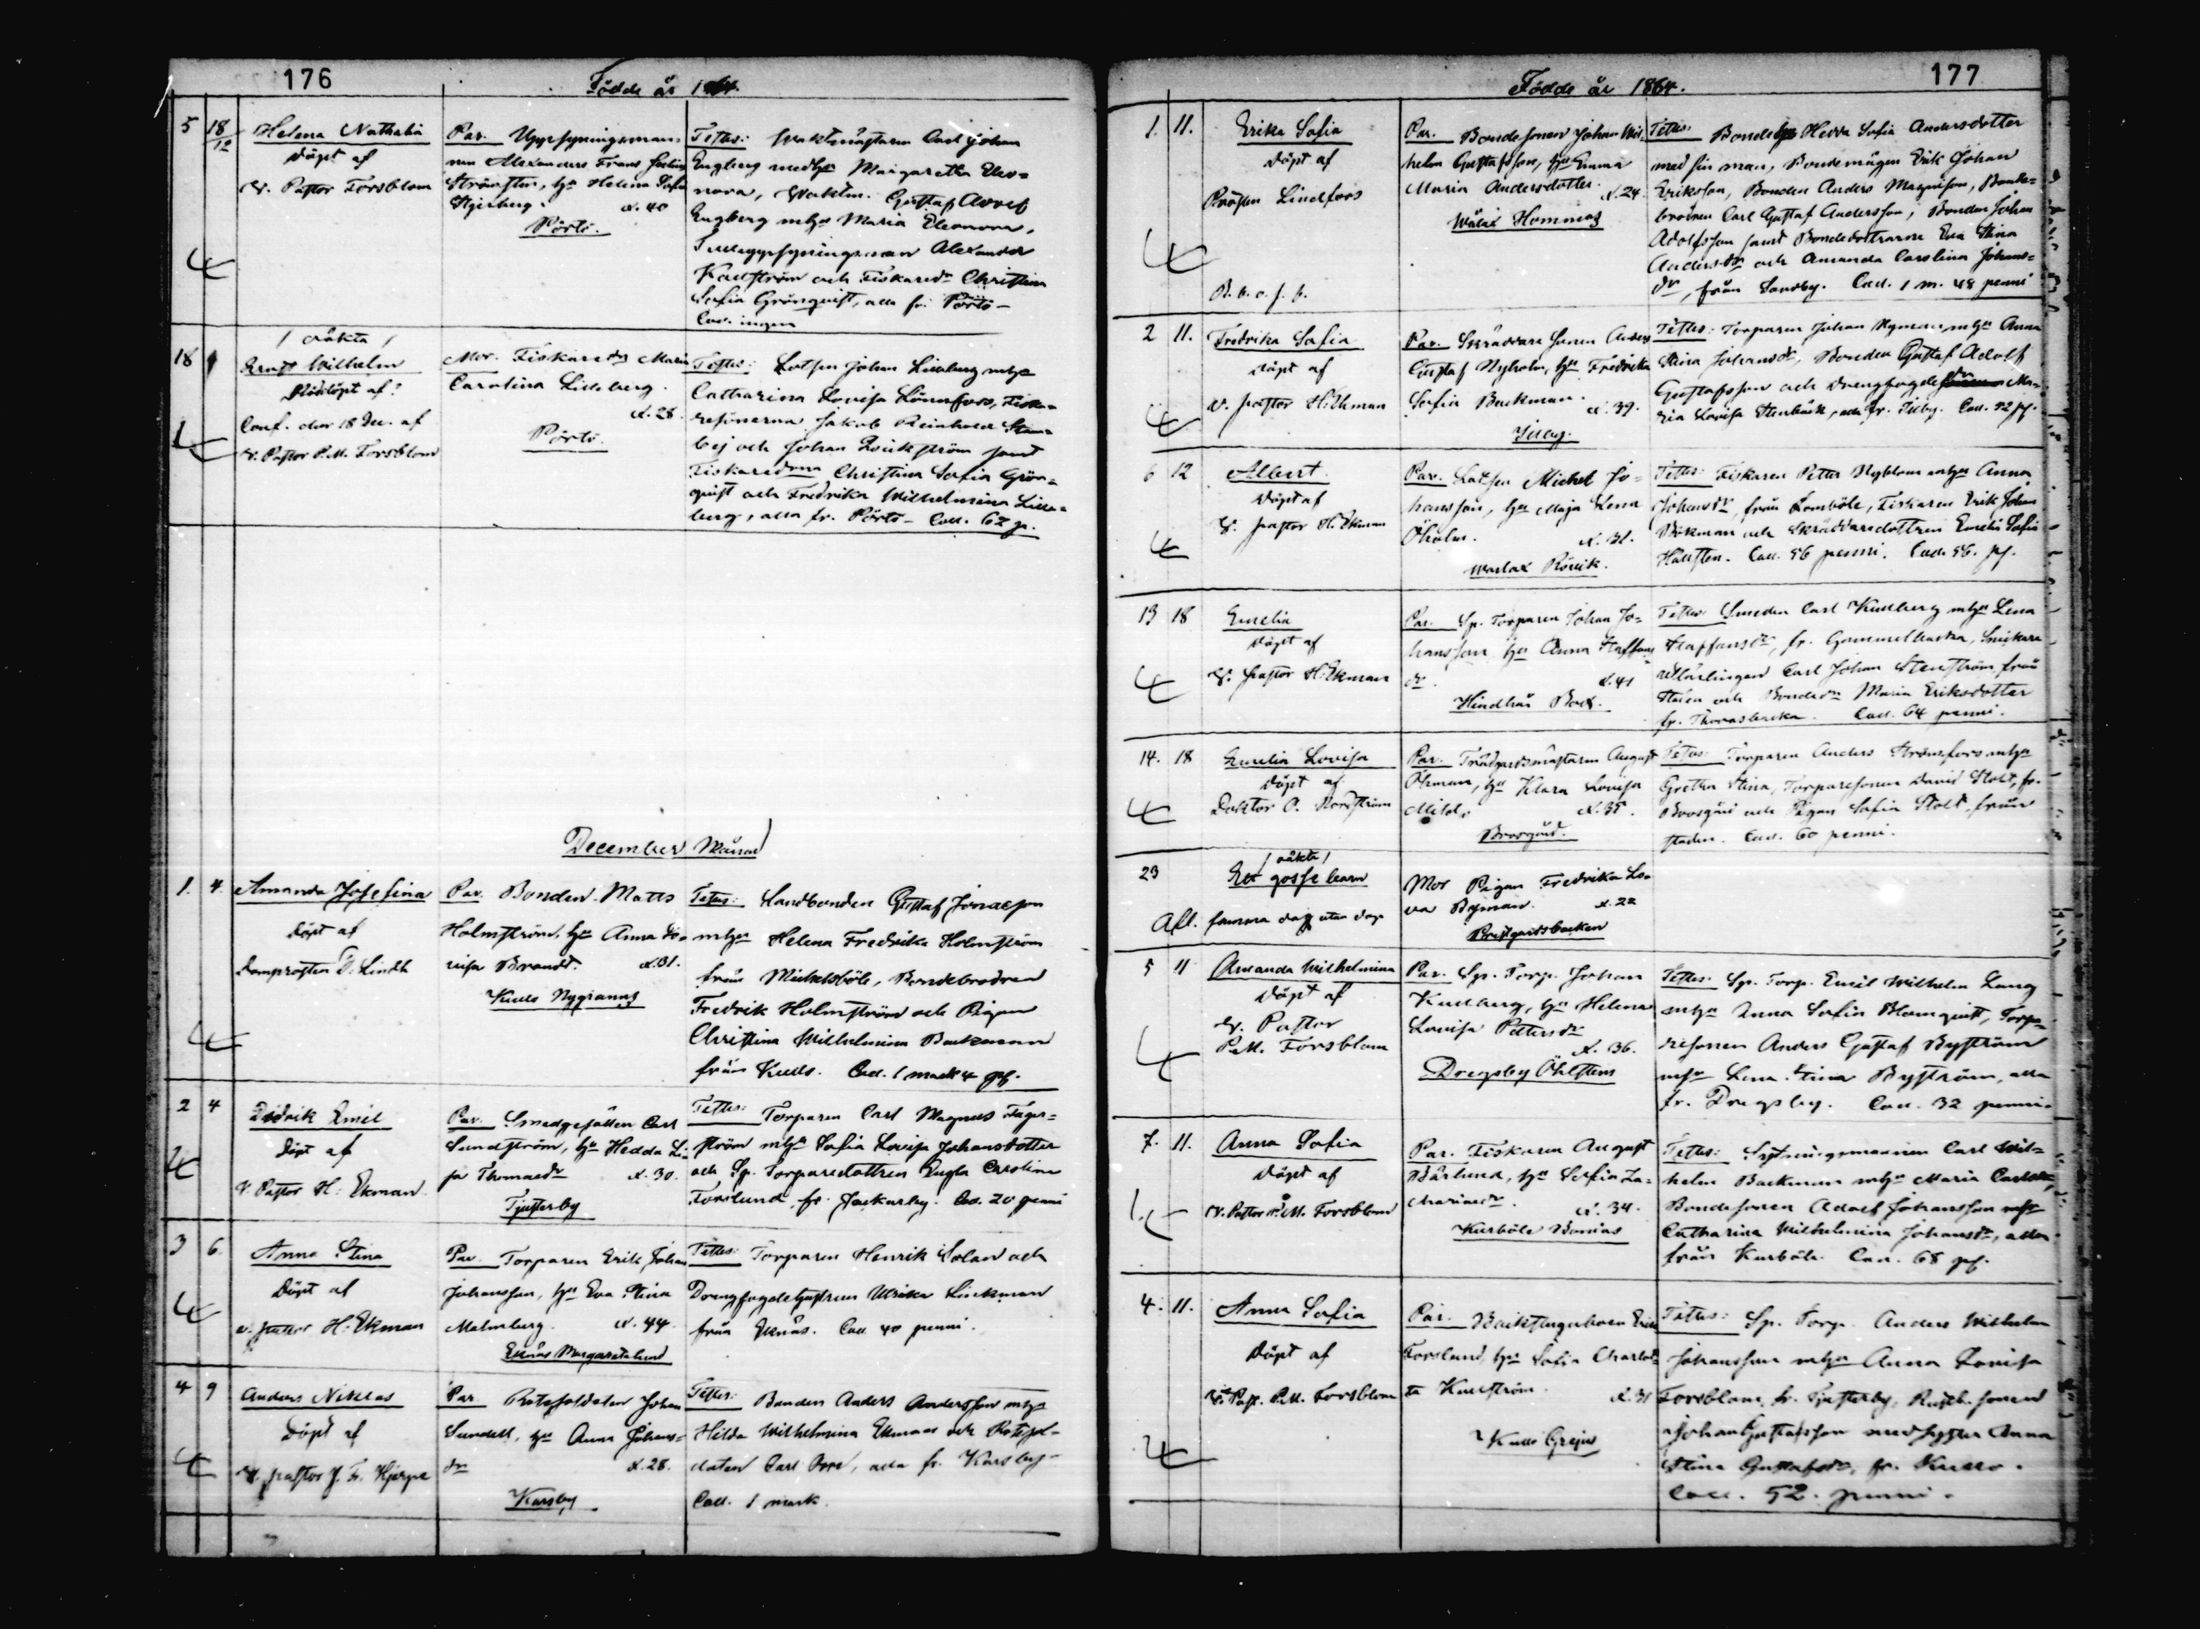 176
Födde år 1864.
5 18/12 Helena Nathalia
Döpt af
V. Pastor Forsblom
Par. Uppsyningsman
nen Alexander Frans
Strömsten, h:u Helena Sofia
a. 40
Pörtö.
Testes: Waktmästaren Carl Johan
Engberg med h:u Margaretha Eleo-
nora, Gustaf Adolf
Engberg m h:u Maria Eleonora,
Tulluppsyningsman Alexander
och Fiskared:r Christina
Sofia Grönquist, alla fr. Pörtö
Coll. ingen
/ oäkta /
18 Ernst Wilhelm
Nöddöpt af?
Conf. den 18 Dec. af
V. Pastor P.M. Forsblom
Mor. Fiskared:r Maria
Carolina Lilleberg.
a. 28.
Pörtö.
Testes: Lotsen Johan Lilleberg m h:u
Catharina Lovisa Lönnfors, Fiska-
resönerna Jakob Reinhold Sten-
och Johan samt
Fiskared:rna Christina Sofia Grön-
quist och Fredrika Wilhelmina Lille-
berg, alla fr. Pörtö. Coll. 62 p.
December Månad
1. 4. Amanda Josefina
Döpt af
Domprosten Lindh
Par. Bonden Matts
Holmström, h:u Anna Lo-
visa Brandt. a. 31.
Kullo Nygrannas
Testes: Landbonden Gustaf Jonasson
m h:u Helena Fredrika Holmström
från Mickelsböle, Bondebrodren
Fredrik Holmström och Pigan
Christina Wilhelmina Backman
från Kullo. Coll. 1 mark 4 p.
2 4 Didrik Emil
Döpt af
V. Pastor H. Ekman
Par. Smedgesällen Carl
Sundström, h:u Hedda Li-
sa Thomasd:r a. 30.
Tjusterby
Testes: Torparen Carl Magnus Fager-
ström m h:u Sofia Lovisa Johansdotter
och Sp. Torparedottren Engla Carolina
Forslund, fr. Jackarby. Coll. 20 penni
3 6. Anna Stina
Döpt af
V. pastor H. Ekman
Par. Torparen Erik Johan
Johansson, h:u Eva Stina
Malmberg. a. 44.
Eknäs Margaretalund
Testes: Torparen Henrik Solan och
Drengfogdehustrun Ulrika Lückman
från Eknäs. Coll. 40 penni.
4 9 Anders Niklas
Döpt af
V. pastor J. Fr. Hjerpe
Par. Rotesoldaten Johan
Sundell, h:u Anna Johans-
d:r a. 28.
Karsby
Testes: Bonden Anders Andersson m h:u
Hilda Wilhelmina Ekman och Rotesol-
daten Carl, alla fr. Karsby
Coll. 1 mark.
177
Födde år 1864.
1. 11. Erika Sofia
Döpt af
Prosten Lindfors
B. b. o. s. b.
Par. Bondesonen Johan Wil-
helm Gustafsson, h:u Emma
Maria Andersdotter. a. 24.
Wålax Hommas
Testes: Hedda Sofia Andersdotter
med sin man, Bondemågen Erik Johan
Eriksson, Bonden Anders Magnusson, Bonde-
brodren Carl Gustaf Andersson, Bonden Johan
Adolfsson samt Bondedottrarne Eva Stina
Andersd:r och Amanda Carolina Johans-
d:r, från Sondby. Coll. 1 m. 48 penni
2 11. Fredrika Sofia
Döpt af
V. pastor H. Ekman
Par. Skräddare sonen Anders
Gustaf Nyholm, h:u Fredrika
Sofia Backman. a. 39.
Illby.
Testes: Torparen Johan Nyman, m h:u Anna
Stina Johansd:r, Bonden Gustaf Adolf
Gustafsson och Drengfogde Ma-
ria Lovisa Stenbäck, alla fr. Illby. Coll. 92 p.
6 12 Albert
Döpt af
V. pastor H. Ekman
Par. Lotsen Michel Jo-
hansson, h:u Maja Lena
Öholm. a. 31.
Warlax Rövik.
Testes: Fiskaren Petter Nyblom m h:u Anna
Johansd:r, från Lomböle, Fiskaren Erik Johan
Bökman och Skräddaredottren Emelie Sofia
Hällsten. Coll. 56 penni. Coll. 56. p.
13 18 Emelia
Döpt af
V. pastor H. Ekman
Par. Sp. Torparen Johan Jo-
hansson h:u Anna Staffans
d:r. a. 41
Hindhår Boe.
Testes: Smeden Carl Kullberg m h:u Lena
Staffansd:r, fr. Gammelbacka, Snickare
Carl Johan Stenström, från
staden och Bonded:r Maria Eriksdotter
fr. Thorasbacka. Coll. 64 penni.
14. 18 Emelia Lovisa
Döpt af
Doktor O. Nordström
Par. Trädgårdsmästaren August
Öhman, h:u Klara Lovisa
a. 35.
Boxgård.
Testes: Torparen Anders Strömfors m h:u
Gretha Stina, Torparesonen David Stolt, fr.
Boxgård och Pigan Sofia Stolt, från
staden. Coll. 60 penni.
/ oäkta /
23 Ett gosse barn
Afl. samma dag utan dop
Mor Pigan Fredrika Lo-
Byman. a. 22
Prestgårdsbacken
5 11 Amanda Wilhelmina
Döpt af
V. Pastor
P.M. Forsblom
Par. Sp. Torp. Johan
Kullberg, h:u Helena
Lovisa Pettersd:r
a. 36.
Drägsby Öhlstens
Testes: Sp. Torp. Emil Wilhelm Lang
m h:u Anna Sofia Blomquist, Torpa-
resonen Anders Gustaf Byström
m h:u Lena Stina Byström, alla
fr. Drägsby. Coll. 32 penni.
7. 11. Anna Sofia
Döpt af
V. Pastor P.M. Forsblom
Par. Fiskaren August
Bärlund, h:u Sofia Za-
chariasd:r. a. 34.
Kurböle Bonäs
Testes: Carl Wil-
helm Backman m h:u Maria Carlsd:r,
Bondesonen Adolf Johansson
Catharina Wilhelmina Johansd:r, alla
från Kurböle. Coll. 68 p.
4. 11. Anna Sofia
Döpt af
V. Past. P.M. Forsblom
Par. Backstuguboen Erik
Forslund, h:u Sofia Charlot-
ta Kullström. a. 31
Kullo Grejus
Testes: Sp. Torp. Anders Wilhelm
Johansson m h:u Anna Lovisa
Forsblom, fr. Tjusterby, sonen
Johan Gustafsson med syster Anna
Stina Gustafsd:r, fr. Kullo.
Coll. 52. penni.